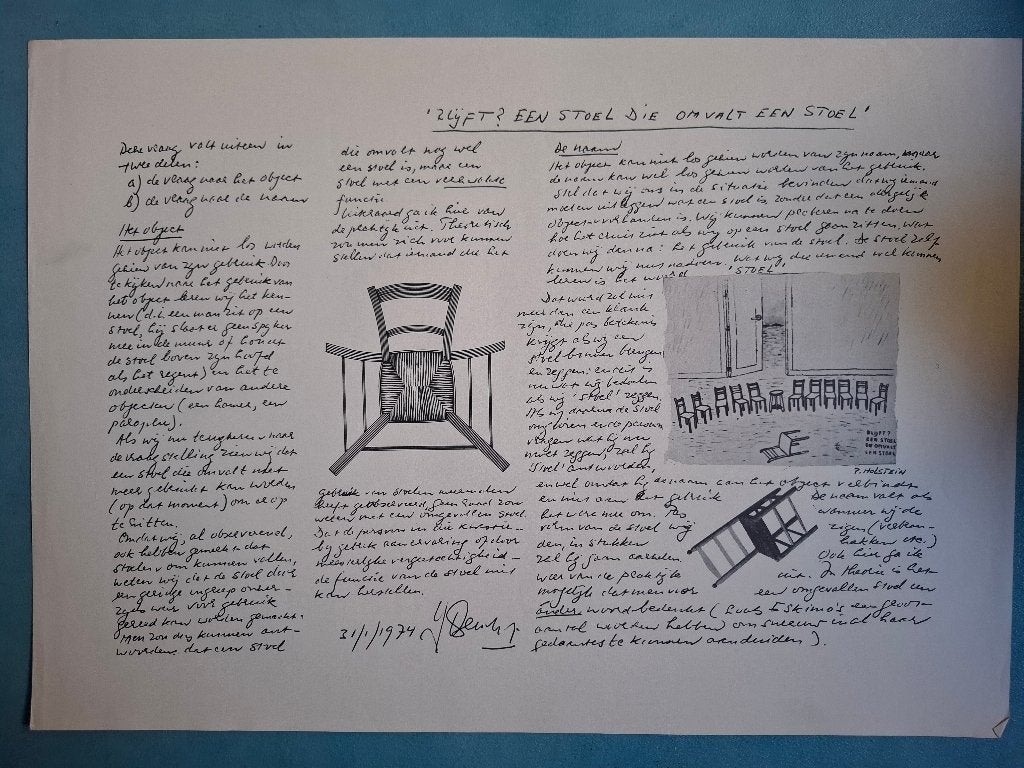 'BLIJFT? EEN STOEL DIE OMVALT EEN STOEL'
Deze vraag valt uiteen in
twee delen:
a) de vraag naar het object
b) de vraag naar de naam
Het object
Het object kan niet los worden
gezien van zijn gebruik. Door
te kijken naar het gebruik van
het object leren wij het ken-
nen (d.i. een man zit op een
stoel, hij slaat er geen spijker
mee in de muur of houdt
de stoel boven zijn hoofd
als het regent) en het te
onderscheiden van andere
objecten (een hamer, een
paraplu).
Als wij nu terugkeren naar
de vraagstelling zien wij dat
een stoel die omvalt niet
meer gebruikt kan worden
(op dat moment) om er op
te zitten.
Omdat wij, al observerend,
ook hebben gemerkt dat
stoelen om kunnen vallen,
weten wij dat de stoel door
een geringe ingreep onzer-
zijds weer voor gebruik
gereed kan worden gemaakt.
Men zou dus kunnen ant-
woorden dat een stoel
die omvalt nog wel
een stoel is, maar een
stoel met een verkorte
functie.
Uiteraard ga ik hier van
de praktijk uit. Theoretisch
zou men zich voor kunnen
stellen dat iemand die het
gebruik van stoelen
heeft geobserveerd, geen raad zou
weten met een omgevallen stoel.
Dat de persoon in kwestie
bij gebrek aan ervaring of door
meerdelijke vergeetachtigheid
de functie van de stoel niet
kan herstellen.
31/1/1974
De naam
Het object kan niet los gezien worden van zijn naam, maar
de naam kan wel los gezien worden van het gebruik.
Stel dat wij ons in de situatie bevinden dat wij iemand
moeten uitleggen wat een stoel is, zonder dat een dergelijk
object voorhanden is. Wij kunnen proberen na te doen
hoe het eruit ziet als wij op een stoel gaan zitten, wat
doen wij dan na: het gebruik van de stoel. De stoel zelf
kunnen wij niet nadoen. Wat wij die iemand wel kunnen
leren is het woord 'STOEL'
Dat woord zal niet
meer dan een klank
zijn, die pas betekenis
krijgt als wij een
stoel binnen brengen
en zeggen: en dit is
nu wat wij bedoelen
als wij 'stoel' zeggen.
Als wij daarna de stoel
omgooien en de persoon
vragen wat hij nu
moet zeggen, zal hij
'stoel' antwoorden,
en wel omdat hij de naam aan het object verbindt
en niet aan het gebruik
De naam valt als
wanneer wij de
vorm van de stoel
zagen (verbran-
den, in stukken
hakken etc.)
Ook hier ga ik
weer van de praktijk
uit. In theorie is het
mogelijk dat men voor een omgevallen stoel een
ander woord bedenkt (zoals Eskimo's een groot
aantal woorden hebben om sneeuw in al haar
gedaantes te kunnen aanduiden).
BLIJFT?
EEN STOEL
DIE OMVALT
EEN STOEL
P. HOLSTEIN